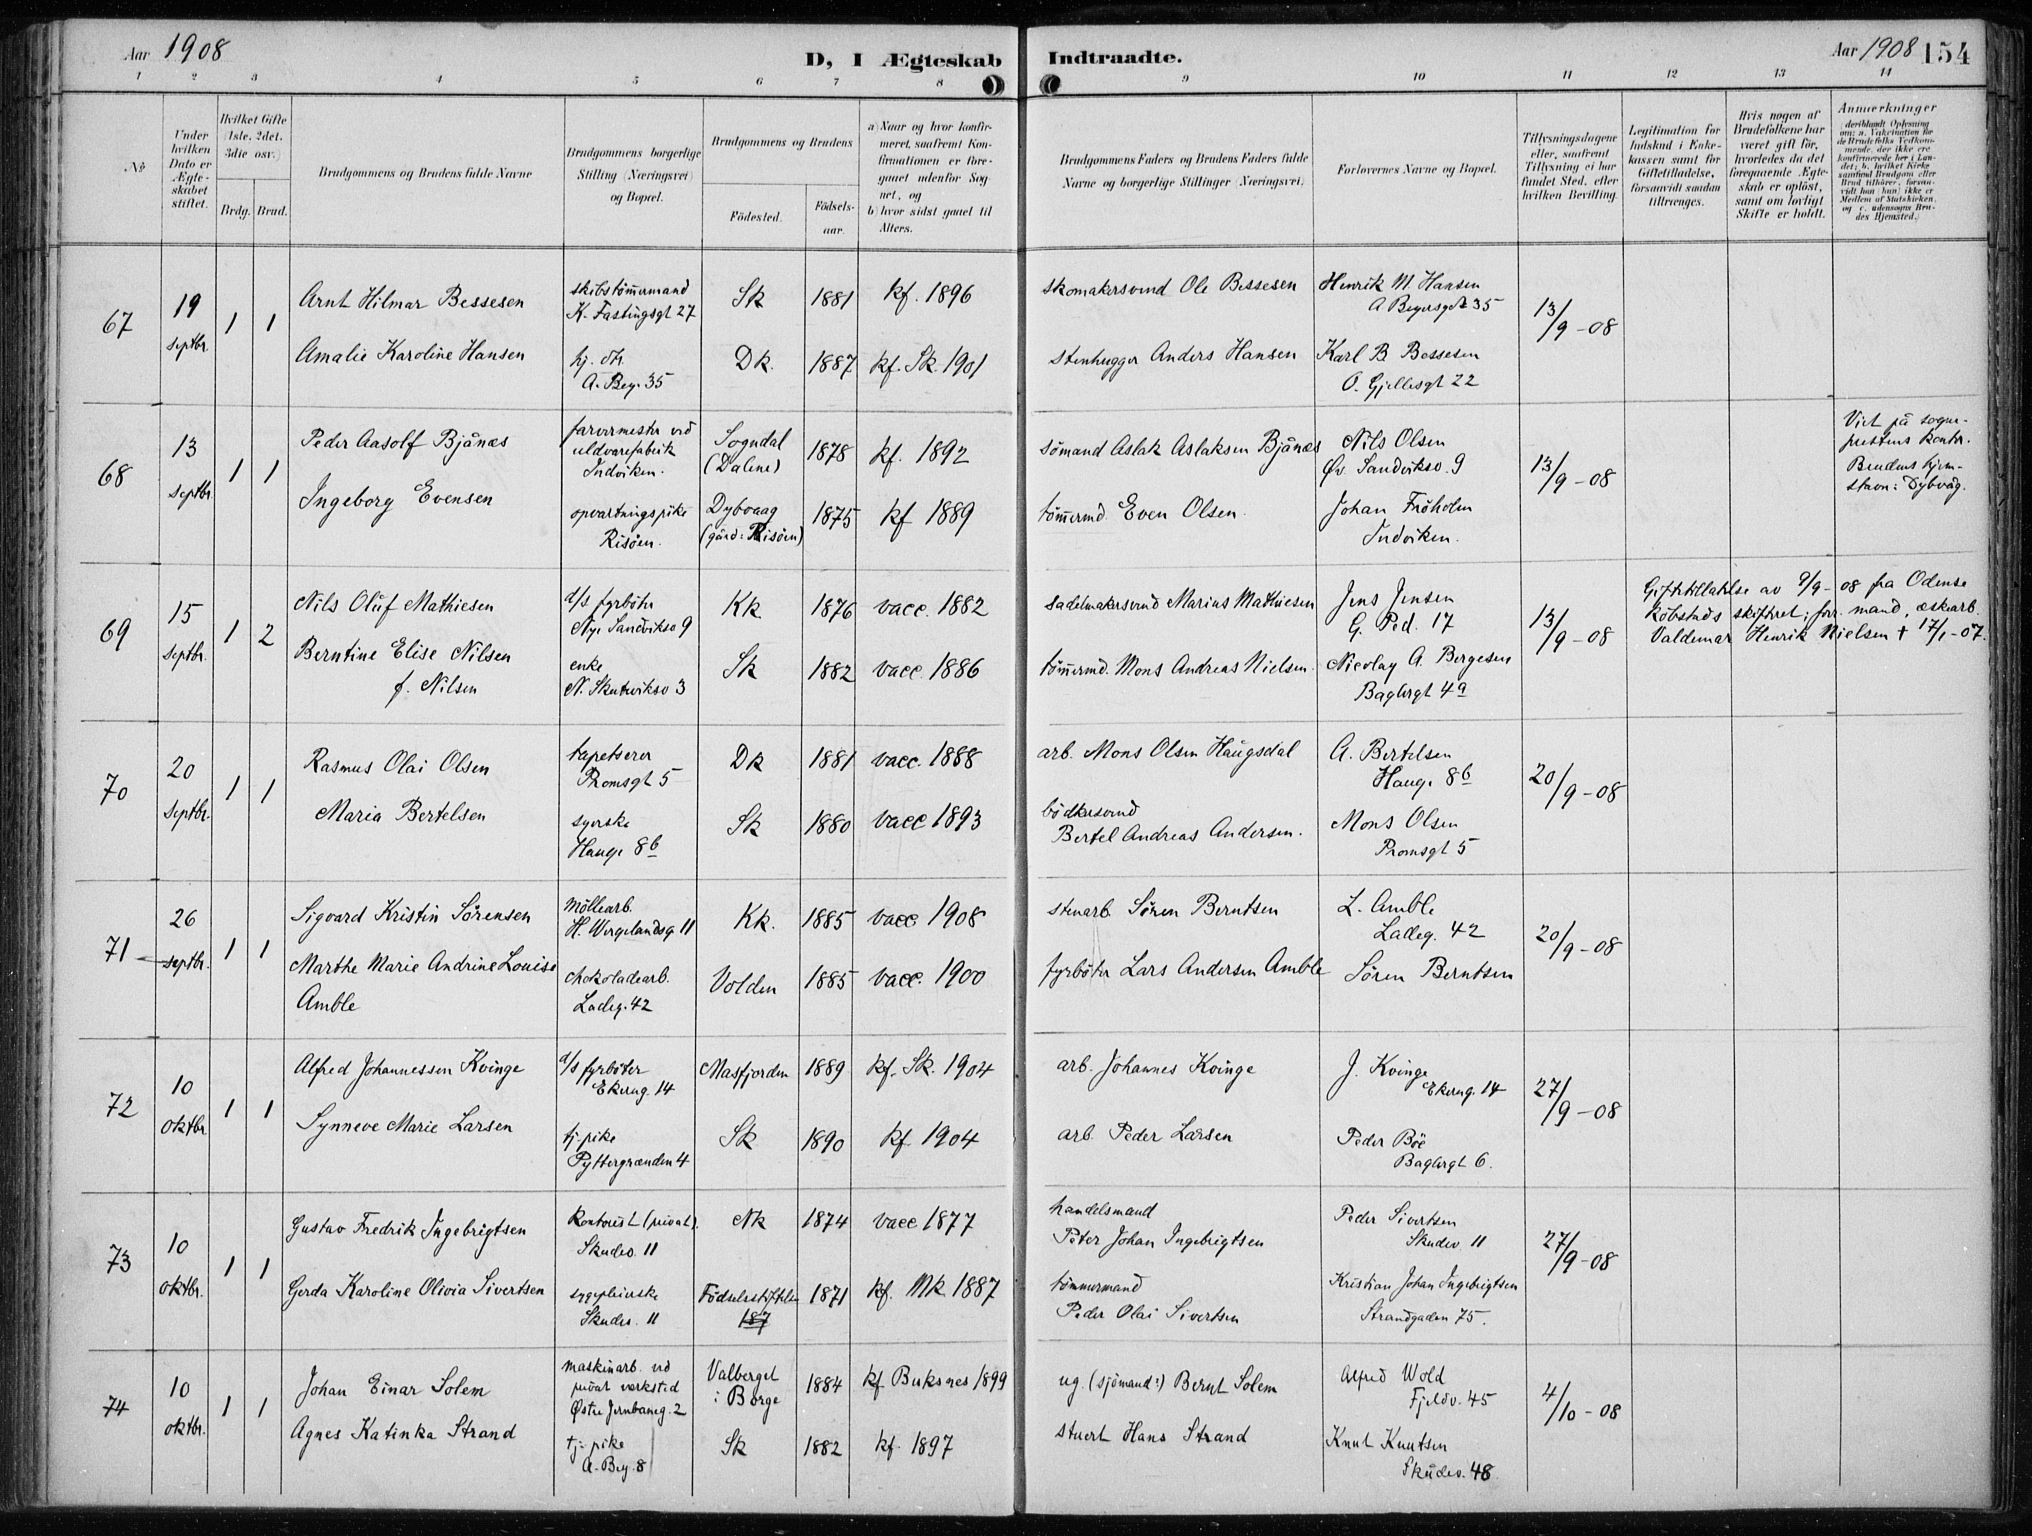 Aar 1908
D, I Ægteskab
Indtraadte.
Aar 1908 154
1 2 3 4 5 6 7 8 9 10 11 12 13 14
No
Under hvilken Dato er Ægteskabet stiftet.
Hvilket Gifte (1ste, 2det, 3die osv.)
Brdg. Brud.
Brudgommens og Brudens fulde Navne
Brudgommens borgerlige Stilling (Næringsvei) og Bopæl.
Brudgommens og Brudens
Fødested.
Fødselsaar.
a) Naar og hvor konfirmeret, saafremt Konfirmationen er foregaaet udenfor Sognet, og
b) hvor sidst gaaet til Alters.
Brudgommens Faders og Brudens Faders fulde Navne og borgerlige Stillinger (Næringsvei)
Forlovernes Navne og Bopæl.
Tillysningsdagene eller, saafremt Tillysning ei har fundet Sted, efter hvilken Bevilling.
Legitimation for Indskud i Enkekassen samt for Giftetilladelse, forsaavidt saadan tiltrænges.
Hvis nogen af Brudefolkene har været gift før, hvorledes da det foregaaende Ægteskab er opløst, samt om lovligt Skifte er holdt.
Anmærkninger
(deriblandt Oplysning om: a. Vakcination for de Brudefolks Vedkommende, der ikke ere konfirmerede her i Landet; b. hvilket Kirkesamfund Brudgom eller Brud tilhører, forsaavidt han (hun) ikke er Medlem af Statskirken, og c. udensogns Brudes Hjemsted.)
67
19 septbr.
1 1
Arnt Hilmar Bessesen
skibstømermand
K. Fastingsgt 27
Sk 1881 kf. 1896
skomakersvend Ole Bessesen
Henrik M. Hansen
A Beyersgt 35
13/9-08
Amalie Karoline Hansen
hj. dtr.
A. Bey. 35
Dk. 1887 kf. Sk. 1901
stenhugger Anders Hansen
Karl B Bessesen
O. Gjellesgt 22
68
13 septbr.
1 1
Peder Aasolf Bjånæs
farvermester ved
uldvarefabrik
Indviken.
Sogndal
(Dalene)
1878 kf. 1892
sømand Aslak Aslaksen Bjånæs
Nils Olsen
Øv. Sandviksv. 9
13/9-08
Viet på sogneprestens kontr.
Brudens hjemstavn: Dybvåg.
Ingeborg Evensen
opvartningspike
Risøen.
Dybvaag
(gård: Risöen)
1875 kf 1889
tømermd. Even Olsen.
Johan Fröholm
Indviken.
69
15 septbr.
1 2
Nils Oluf Mathiesen
d/s fyrbøter
Nye Sandviksv 9
Kk. 1876 vacc. 1882
sadelmakersvend Marius Mathiesen
Jens Jensen
G. Ped. 17
13/9-08
Giftetilladelse av 9/9-08 fra Odense
Købstads skifteret; forr. mand, æskearb.
Valdemar Henrik Nielsen † 17/1-07.
Berntine Elise Nilsen
f. Nilsen
enke
N. Skuteviksv 3
Sk 1882 vacc. 1886
tømermd. Mons Andreas Nielsen.
Nicolay A. Bergesen
Baglergt 4a
70
20 septbr.
1 1
Rasmus Olai Olsen
tapetserer
Promsgt 5
Dk 1881 vacc. 1888
arb. Mons Olsen Haugsdal
A. Bertelsen
Haug. 8b
20/9-08
Maria Bertelsen
syerske
Haug. 8b
Sk 1880 vacc 1893
bødkersvend
Bertel Andreas Andersen.
Mons Olsen
Promsgt 5
71
26 septbr.
1 1
Sigvard Kristin Sörensen
møllearb.
H. Wergelandsg 11
Kk. 1885 vacc 1908
stenarb. Søren Berntsen
L. Amble
Ladeg. 42
20/9-08
Marthe Marie Andrine Louise
Amble
chokoladearb.
Ladeg. 42
Volden 1885 vacc. 1900
fyrbøter Lars Andersen Amble
Søren Berntsen
72
10 oktbr.
1 1
Alfred Johannessen Kvinge
d/s fyrbøter
Ekreng. 14
Masfjorden 1889 kf. Sk. 1904
arb. Johannes Kvinge
J. Kvinge
Ekreng. 14
27/9-08
Synneve Marie Larsen
tj. pike
Pyttergrænden 4
Sk 1890 kf. 1904
arb. Peder Larsen
Peder Böe
Baglergt 6.
73
10 oktbr.
1 1
Gustav Fredrik Ingebrigtsen
kontorist (privat).
Skudev. 11
Nk 1874 vacc 1877
handelsmand
Peter Johan Ingebrigtsen
Peder Sivertsen
Skudev. 11
27/9-08
Gerda Karoline Olivia Sivertsen
sygepleierske
Skudev. 11
Födselsstiftelsen
187
1871 kf. Mk. 1887
tømmermand
Peder Olai Sivertsen
Kristian Johan Ingebrigtsen
Strandgaden 75.
74
10 oktbr.
1 1
Johan Einar Solem
maskinarb. ved
privat verksted
Østre Jernbaneg. 2
Valberget
i Borge
1884 kf Buksnes 1899
ug. (sjömand:) Bernt Solem
Alfred Wold
Fjeldv. 45
4/10-08
Agnes Katinka Strand
tj. pike
A. Bey. 8
Sk 1882 kf. 1897
stuert Hans Strand
Knut Knutsen
Skudev. 48